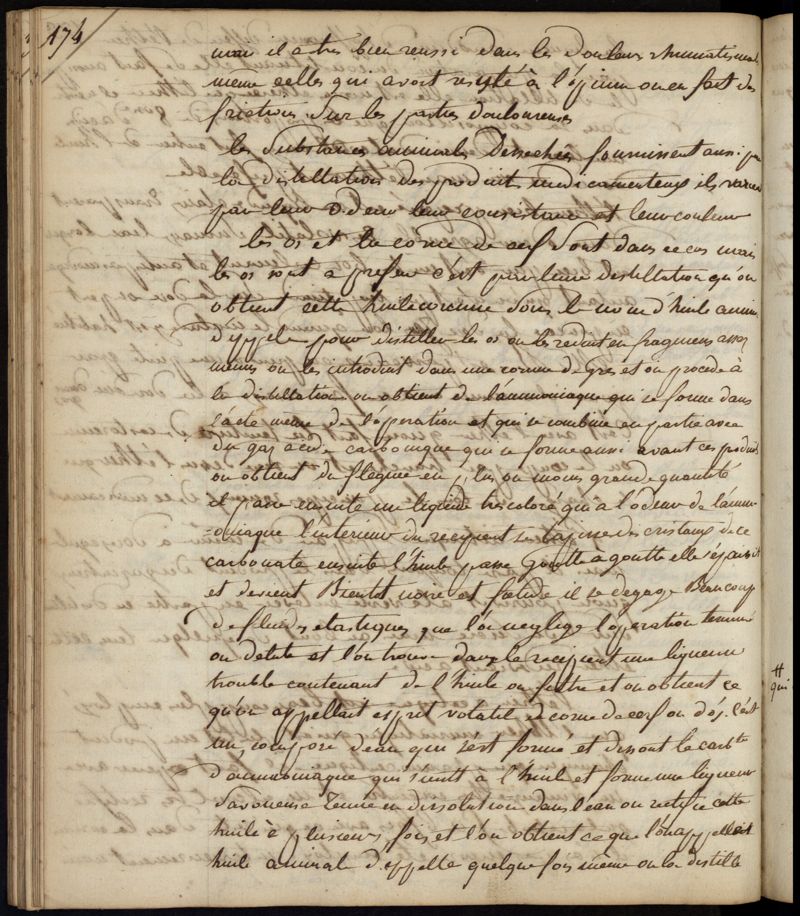 174
mais il a tres bien reussi dans les douleurs rhumatismal
meme celles qui avoit resisté à l'opium on en fait des
frictions sur les parties douloureuses
les substances animales dessechées fournissent aussi par
la distillation des produits medicamenteux ils varient
par leur odeur leur consistance et leur couleur
les os et la corne de cerf sont dans ce cas mais
les os sont a preferer c'est par leur distillation qu'on
obtient cette huile connue sous le nom d'huile anim.
d'yppele pour distiller les os on les reduit en fragmens assez
menus on les introduit dans une cornue de Grès et on procede à
la distillation on obtient de l'ammoniaque qui se forme dans
l'acte même de l'operation et qui se combine en partie avec
du gaz acide carbonique qui se forme aussi avant ces produits
on obtient du flegme en plus ou moins grande quantité
il passe ensuite un liquide tres coloré qui à l'odeur de l'ammo-
-oniaque l'interieur du recipient se tapisse des cristaux de ce
carbonate ensuite l'huile passe Goutte à goutte elle s'épaissit
et devient Bientot noire et fœtide il se degage Beaucoup
de fluides elastiques que l'on neglige l'operation terminé
on delute et l'on trouve dans le recipient une liqueur
trouble contenant de l'huile on filtre et on obtient ce
qu'on appellait esprit volatil de corne de cerf ou d'os. C'est
un composé d'eau qui s'est formé et dissout le carb.te
d'ammoniaque qui s'unit à l'huile et forme une liqueur
savoneuse tenue en dissolution dans l'eau on rectifie cette
huile à plusieurs fois et l'on obtient ce que l'on appelloit
huile animale d'yppelle quelque fois même on la distille
# qui